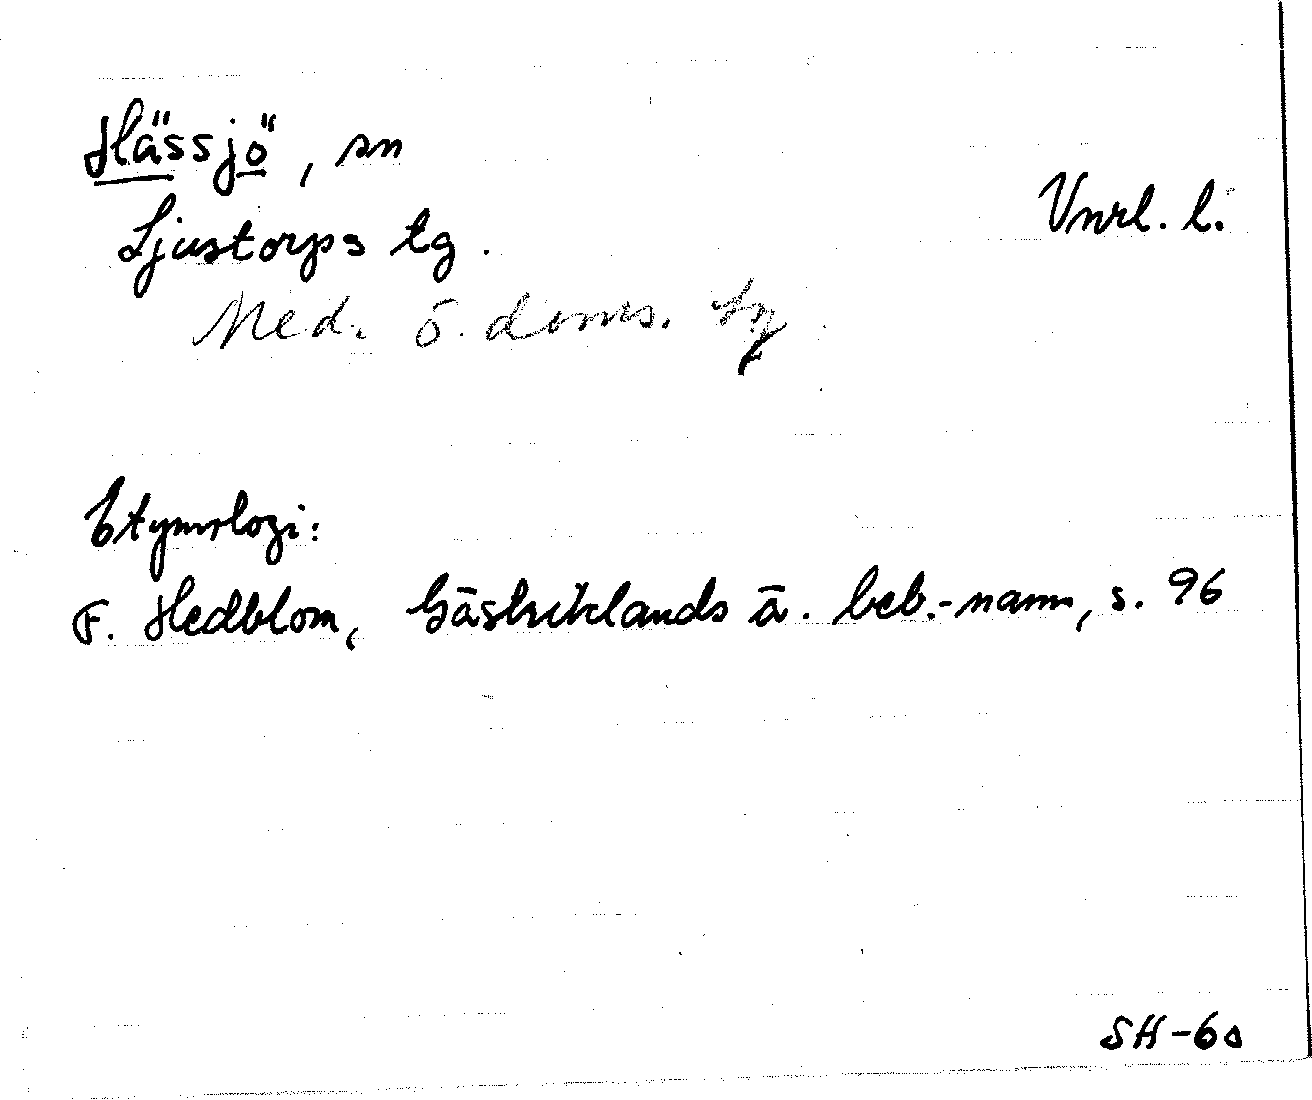 Hässjö, sn
Vnrl. l.
Ljustorps tg.
Med. ö. doms.
Etymologi:
F. Hedblom, Gästriklands ä. beb.-namn, s. 96
SH-60